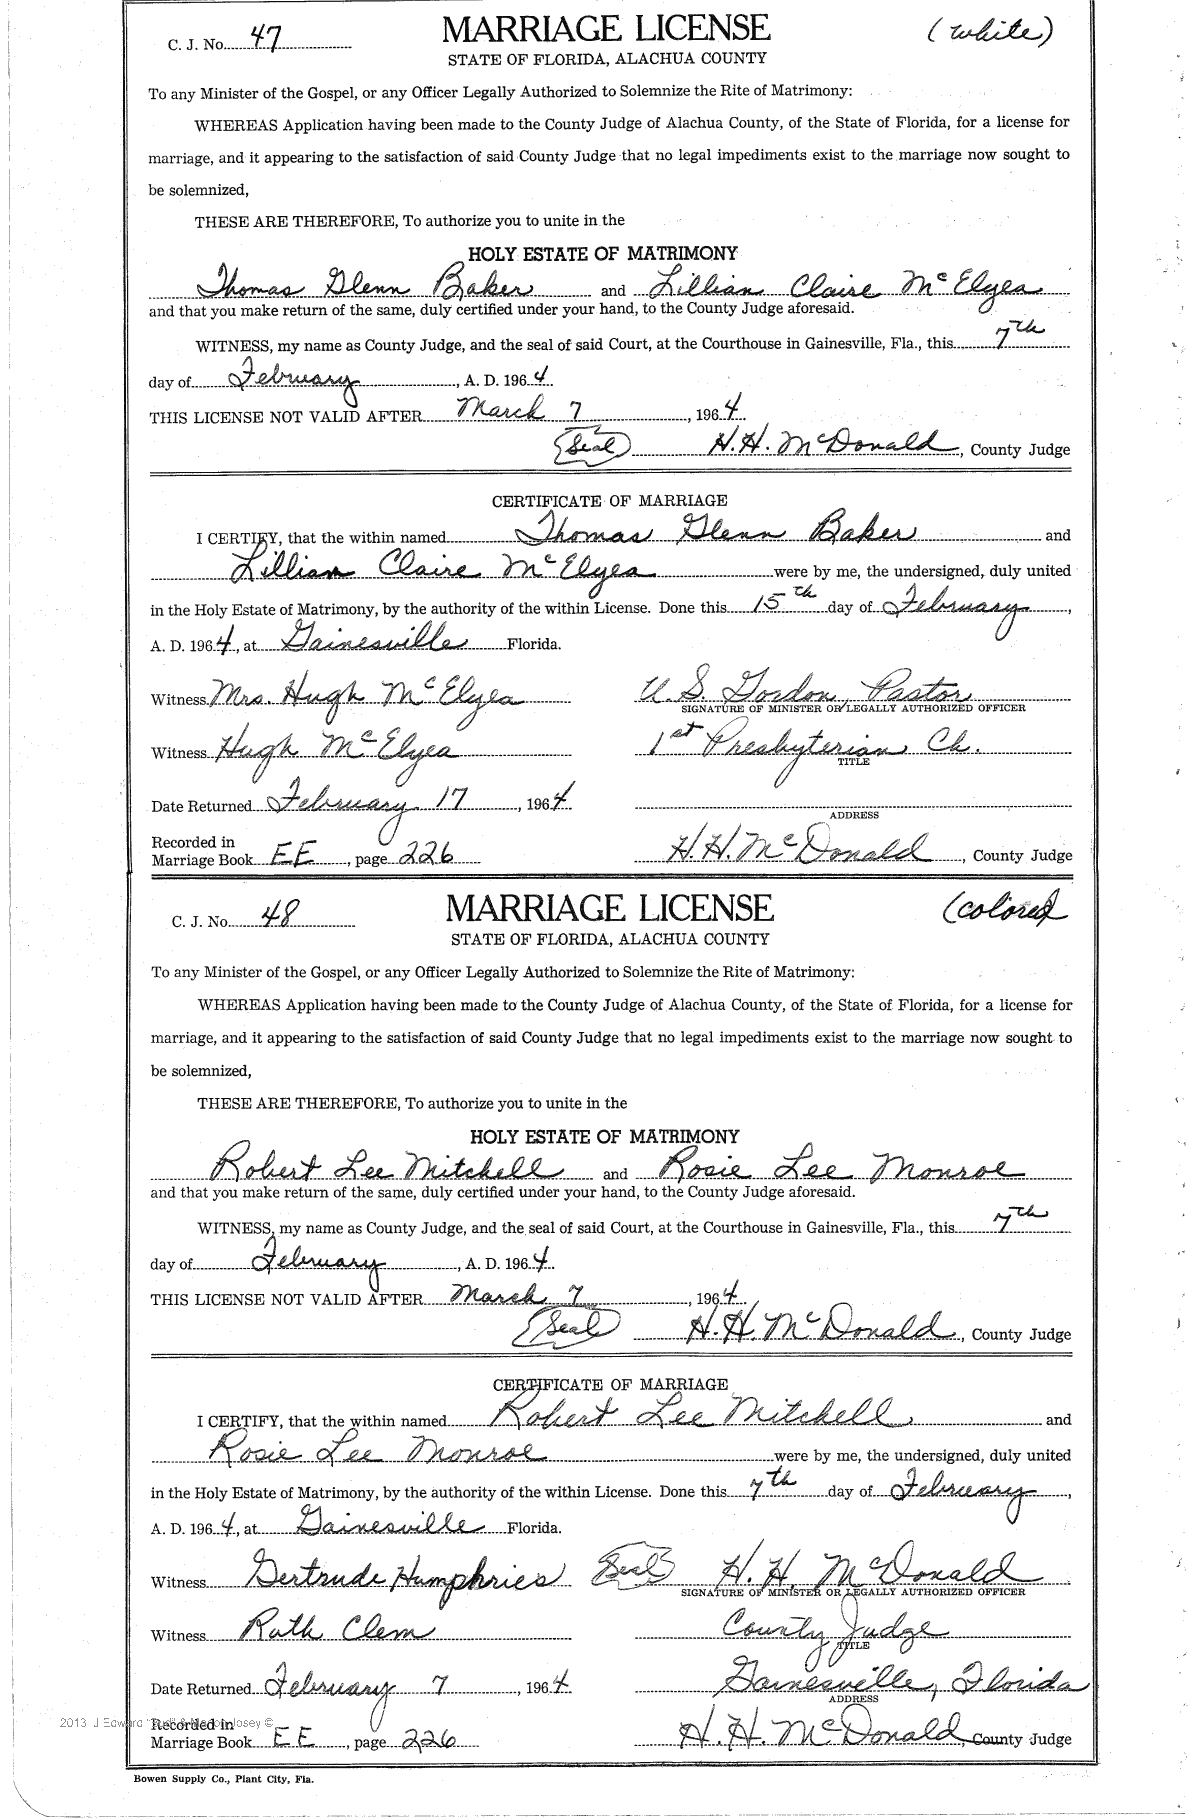 C. J. No. 47 MARRIAGE LICENSE (white)
STATE OF FLORIDA, ALACHUA COUNTY
To any Minister of the Gospel, or any Officer Legally Authorized to Solemnize the Rite of Matrimony:
WHEREAS Application having been made to the County Judge of Alachua County, of the State of Florida, for a license for
marriage, and it appearing to the satisfaction of said County Judge that no legal impediments exist to the marriage now sought to
be solemnized,
THESE ARE THEREFORE, To authorize you to unite in the
HOLY ESTATE OF MATRIMONY
Thomas Glenn Baker and Lillian Claire McElyea
and that you make return of the same, duly certified under your hand, to the County Judge aforesaid.
WITNESS, my name as County Judge, and the seal of said Court, at the Courthouse in Gainesville, Fla., this 7th
day of February, A. D. 1964.
THIS LICENSE NOT VALID AFTER March 7, 1964
(Seal) H. H. McDonald, County Judge
CERTIFICATE OF MARRIAGE
I CERTIFY, that the within named Thomas Glenn Baker and
Lillian Claire McElyea were by me, the undersigned, duly united
in the Holy Estate of Matrimony, by the authority of the within License. Done this 15th day of February,
A. D. 1964, at Gainesville Florida.
Witness Mrs. Hugh McElyea U. S. Gordon, Pastor
SIGNATURE OF MINISTER OR LEGALLY AUTHORIZED OFFICER
Witness Hugh McElyea 1st Presbyterian Ch.
TITLE
Date Returned February 17, 1964
ADDRESS
Recorded in
Marriage Book EE, page 226 H. H. McDonald, County Judge
C. J. No. 48 MARRIAGE LICENSE (colored
STATE OF FLORIDA, ALACHUA COUNTY
To any Minister of the Gospel, or any Officer Legally Authorized to Solemnize the Rite of Matrimony:
WHEREAS Application having been made to the County Judge of Alachua County, of the State of Florida, for a license for
marriage, and it appearing to the satisfaction of said County Judge that no legal impediments exist to the marriage now sought to
be solemnized,
THESE ARE THEREFORE, To authorize you to unite in the
HOLY ESTATE OF MATRIMONY
Robert Lee Mitchell and Rosie Lee Monroe
and that you make return of the same, duly certified under your hand, to the County Judge aforesaid.
WITNESS, my name as County Judge, and the seal of said Court, at the Courthouse in Gainesville, Fla., this 7th
day of February, A. D. 1964.
THIS LICENSE NOT VALID AFTER March 7, 1964
(Seal) H. H. McDonald, County Judge
CERTIFICATE OF MARRIAGE
I CERTIFY, that the within named Robert Lee Mitchell and
Rosie Lee Monroe were by me, the undersigned, duly united
in the Holy Estate of Matrimony, by the authority of the within License. Done this 7th day of February,
A. D. 1964, at Gainesville Florida.
Witness Gertrude Humphries (Seal) H. H. McDonald
SIGNATURE OF MINISTER OR LEGALLY AUTHORIZED OFFICER
Witness Ruth Clem County Judge
TITLE
Date Returned February 7, 1964 Gainesville, Florida
ADDRESS
2013 J Edward
Recorded in
Marriage Book EE, page 226 H. H. McDonald, County Judge
Bowen Supply Co., Plant City, Fla.